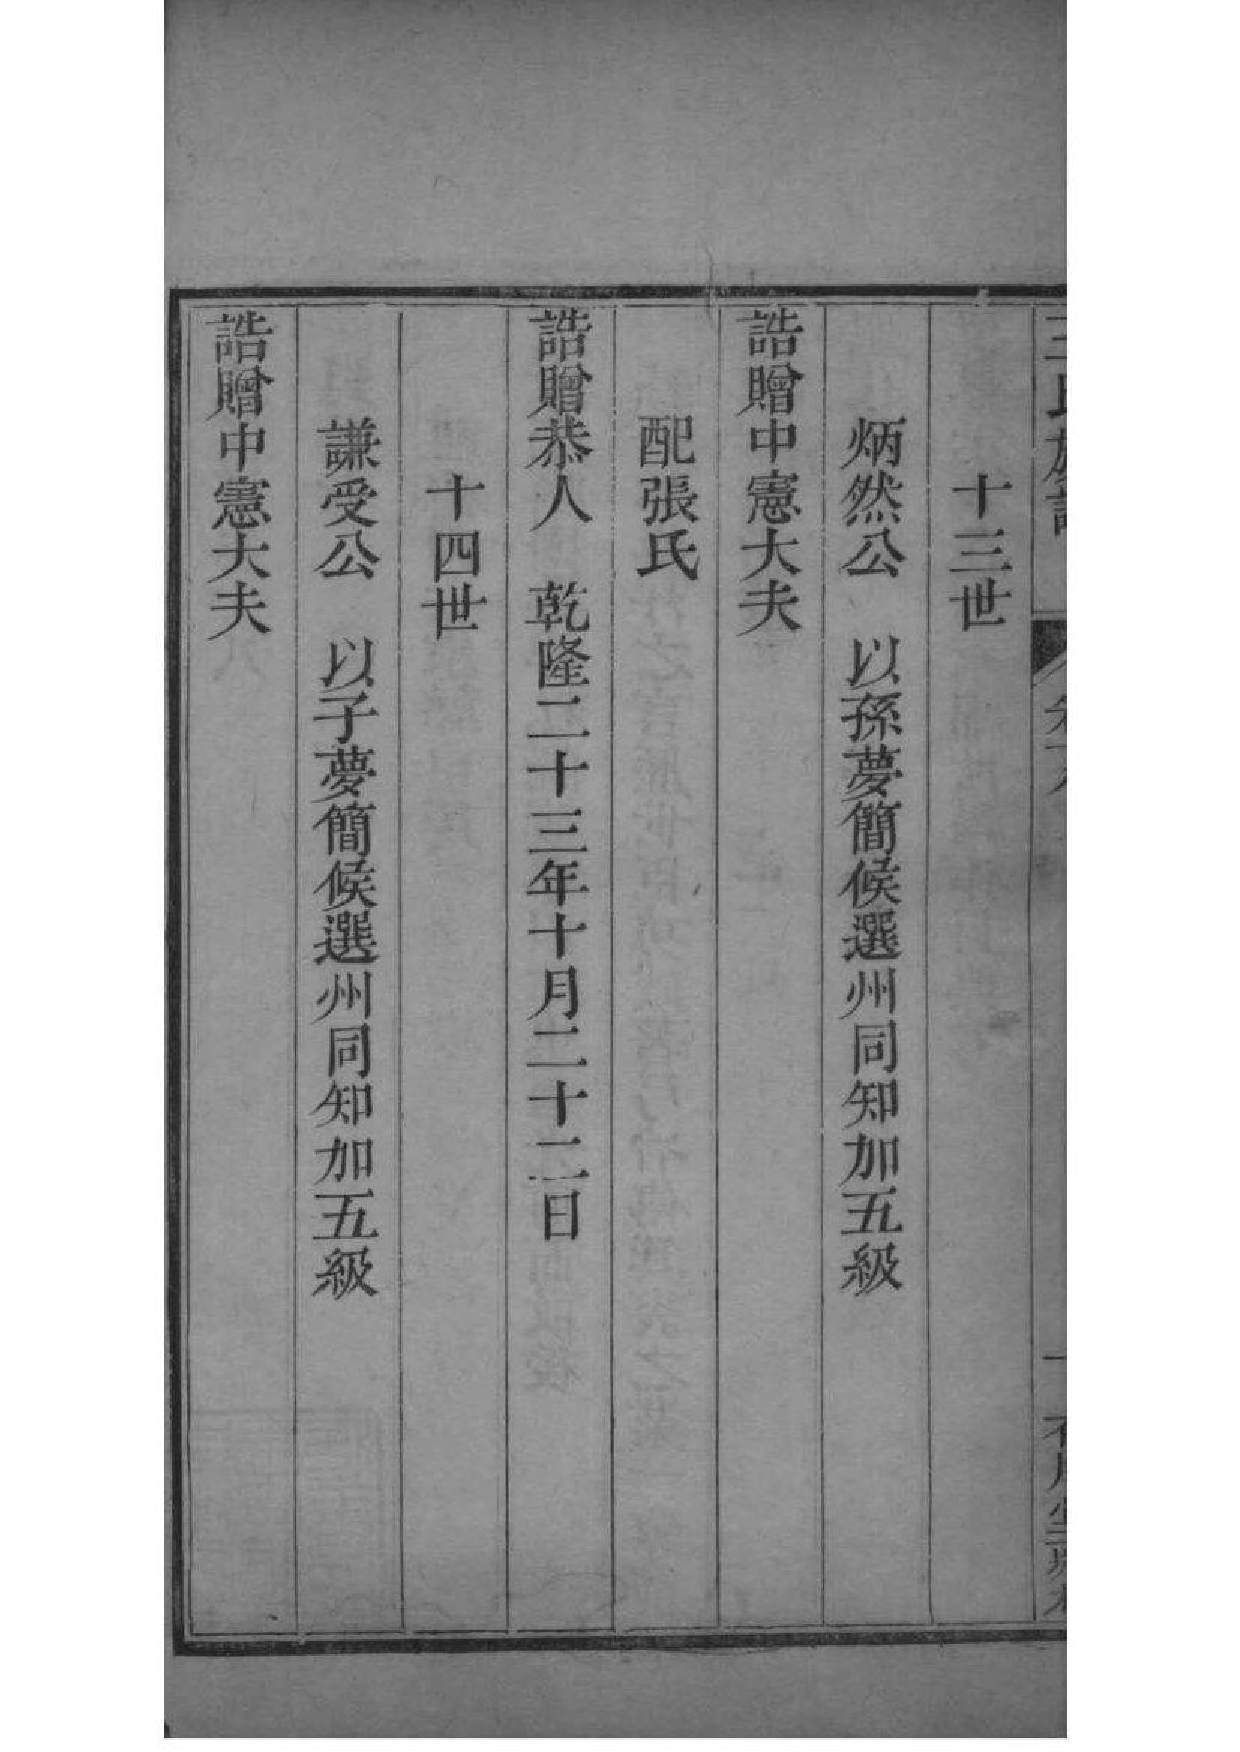 十三世
炳然公　以孫夢簡候選州同知加五級
誥贈中憲大夫
配張氏
誥贈恭人　乾隆二十三年十月二十二日
十四世
謙受公　以子夢簡候選州同知加五級
誥贈中憲大夫